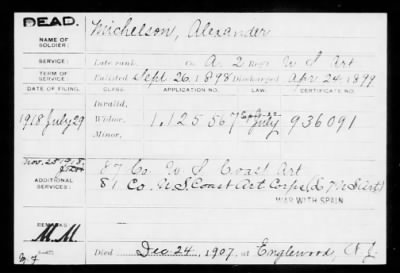 DEAD.
NAME OF SOLDIER: Michelson, Alexander
SERVICE: Late rank, Co. A, 2 Reg't U S Art
TERM OF SERVICE: Enlisted Sept 26, 1898 Discharged Apr 24, 1899
DATE OF FILING. CLASS. APPLICATION NO. LAW. CERTIFICATE NO.
Invalid,
1918 July 29 Widow, 1.125567 July 936091
Minor,
ADDITIONAL SERVICES: 87 Co. U S Coast Art
81 Co. U.S. Coast Art Corps
WAR WITH SPAIN
REMARKS: M.M.
Died Dec 24, 1907, at Englewood, N J.